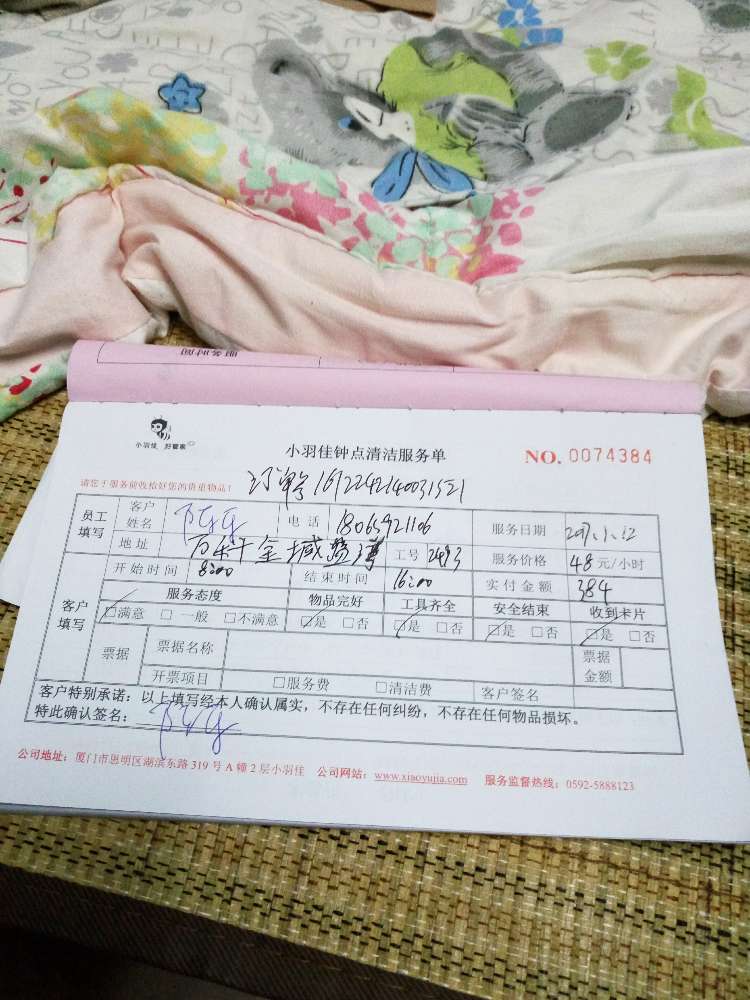 小羽佳 好管家
小羽佳钟点清洁服务单
NO. 0074384
请您于服务前收拾好您的贵重物品！
订单号
员工填写 客户姓名 电话 服务日期
地址 工号 2493 服务价格 48元/小时
客户填写 开始时间 8:00 结束时间 16:00 实付金额 384
服务态度 物品完好 工具齐全 安全结束 收到卡片
☑满意 □一般 □不满意 ☑是 □否 ☑是 □否 ☑是 □否 ☑是 □否
票据 票据名称 票据金额
开票项目 □服务费 □清洁费 客户签名
客户特别承诺：以上填写经本人确认属实，不存在任何纠纷，不存在任何物品损坏。
特此确认签名：
公司地址：厦门市思明区湖滨东路 319 号 A 幢 2 层小羽佳 公司网站：www.xiaoyujia.com 服务监督热线：0592-5888123